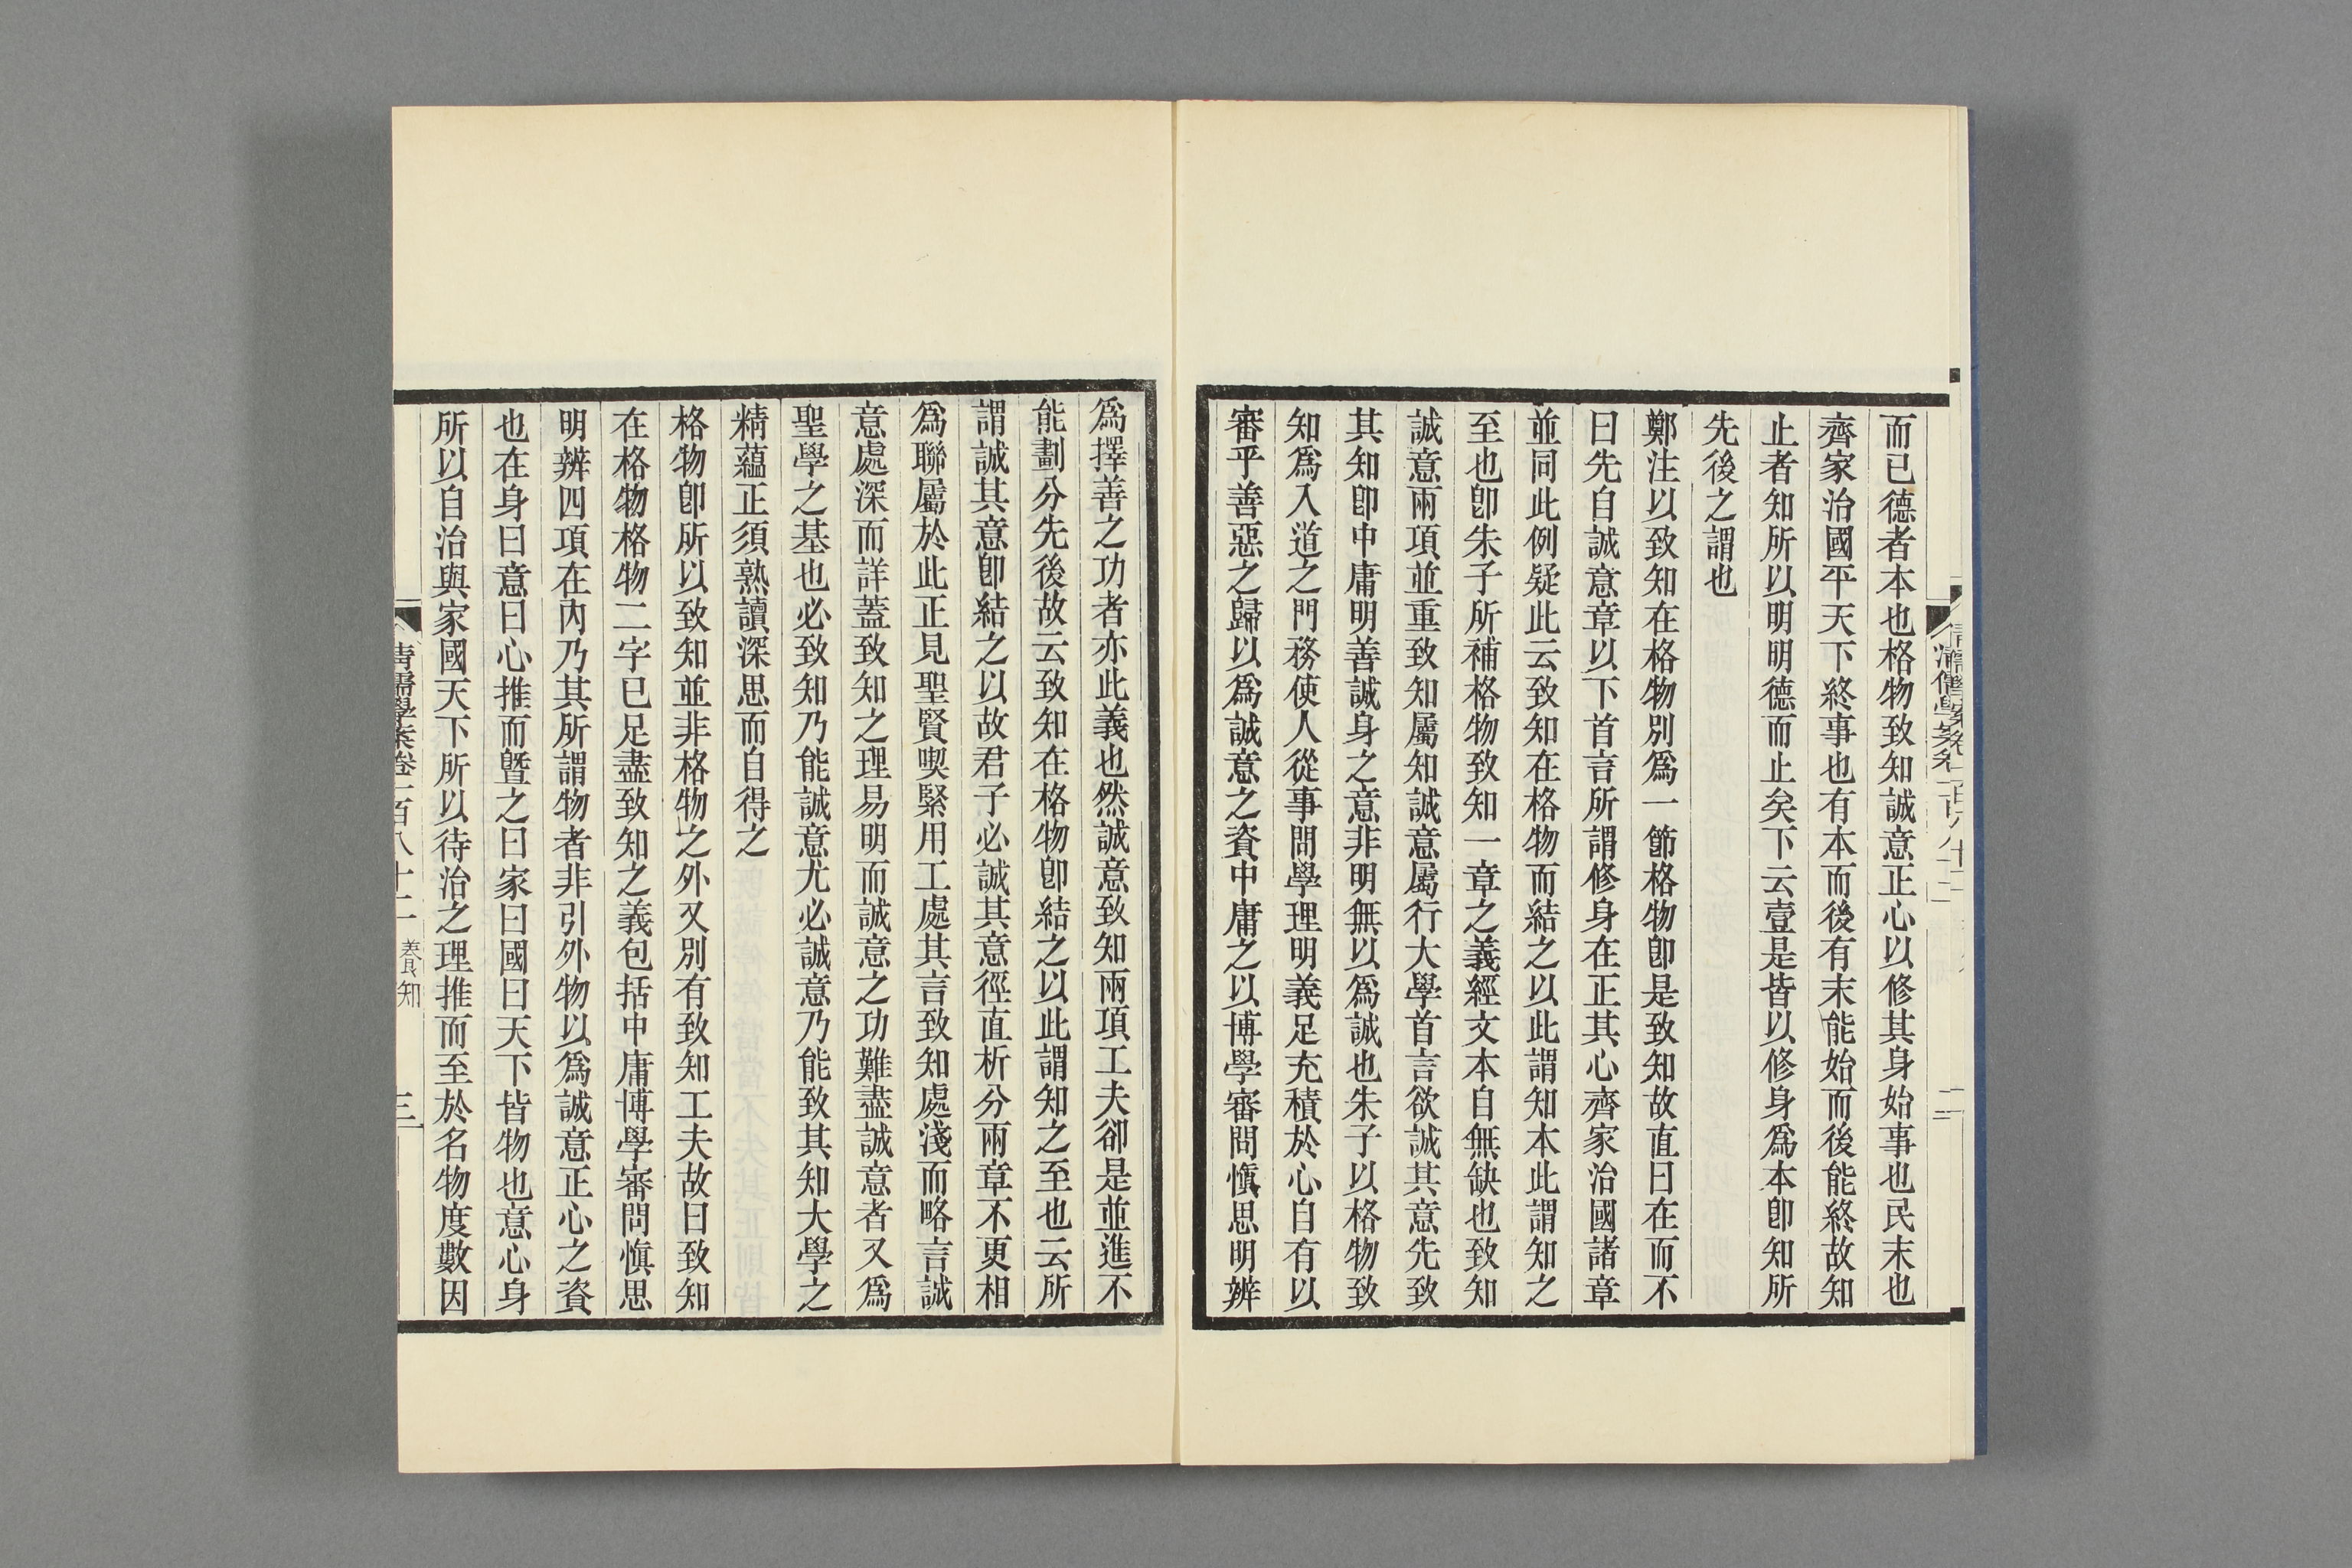 而已德者本也格物致知誠意正心以修其身始事也民末也
齊家治國平天下終事也有本而後有末能始而後能終故知
止者知所以明明德而止矣下云壹是皆以修身爲本卽知所
先後之謂也
鄭注以致知在格物別爲一節格物卽是致知故直曰在而不
曰先自誠意章以下首言所謂修身在正其心齊家治國諸章
並同此例疑此云致知在格物而結之以此謂知本此謂知之
至也卽朱子所補格物致知一章之義經文本自無缺也致知
誠意兩項並重致知屬知誠意屬行大學首言欲誠其意先致
其知卽中庸明善誠身之意非明無以爲誠也朱子以格物致
知爲入道之門務使人從事問學理明義足充積於心自有以
審乎善惡之歸以爲誠意之資中庸之以博學審問愼思明辨
爲擇善之功者亦此義也然誠意致知兩項工夫卻是並進不
能劃分先後故云致知在格物卽結之以此謂知之至也云所
謂誠其意卽結之以故君子必誠其意徑直析分兩章不更相
爲聯屬於此正見聖賢喫緊用工處其言致知處淺而略言誠
意處深而詳蓋致知之理易明而誠意之功難盡誠意者又爲
聖學之基也必致知乃能誠意尤必誠意乃能致其知大學之
精蘊正須熟讀深思而自得之
格物卽所以致知並非格物之外又別有致知工夫故曰致知
在格物格物二字已足盡致知之義包括中庸博學審問愼思
明辨四項在內乃其所謂物者非引外物以爲誠意正心之資
也在身曰意曰心推而曁之曰家曰國曰天下皆物也意心身
所以自治與家國天下所以待治之理推而至於名物度數因
清儒學案卷一百八十二 養知 三